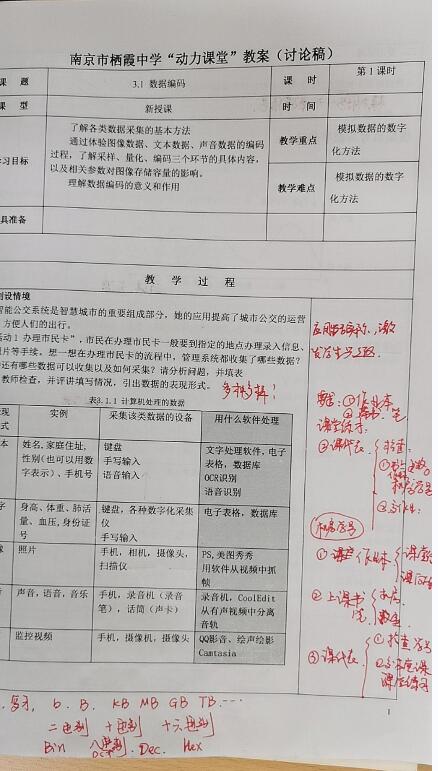 南京市栖霞中学“动力课堂”教案（讨论稿）
课 题
3.1 数据编码
课 时
第 1 课时
课 型
新授课
时 间
学习目标
了解各类数据采集的基本方法
通过体验图像数据、文本数据、声音数据的编码
过程，了解采样、量化、编码三个环节的具体内容，
以及相关参数对图像存储容量的影响。
理解数据编码的意义和作用
教学重点
模拟数据的数字
化方法
教学难点
模拟数据的数字
化方法
具准备
教 学 过 程
创设情境
智能公交系统是智慧城市的重要组成部分，她的应用提高了城市公交的运营
，方便人们的出行。
活动 1 办理市民卡”，市民在办理市民卡一般要到指定的地点办理录入信息、
照片等手续。想一想在办理市民卡的流程中，管理系统都收集了哪些数据？
中还有哪些数据可以收集以及如何采集？请分析问题，并填表
教师检查，并评讲填写情况，引出数据的表现形式。
表3.1.1 计算机处理的数据
现
式
实例
采集该类数据的设备
用什么软件处理
本
姓名,家庭住址,
性别(也可以用数
字表示)、手机号
键盘
手写输入
语音输入
文字处理软件,电子
表格，数据库
OCR识别
语音识别
字
身高、体重、肺活
量、血压,身份证
号
键盘，各种数字化采集
仪
手写输入
电子表格，数据库
像
照片
手机，相机，摄像头，
扫描仪
PS,美图秀秀
用软件从视频中抓
帧
声音，语音，音乐
手机，录音机（录音
笔），话筒（声卡）
录音机，CoolEdit
从有声视频中分离
音轨
监控视频
手机，摄像机，摄像头
QQ影音、绘声绘影
Camtasia
① 作业本
课堂练习：
② 课代表
检查：
机房序号
① 课堂作业本
② 上课书
③ 课代表
① 检查序号
复习， b. B. KB MB GB TB.…
二进制 十进制 十六进制
Bin 八进制 Dec. Hex
OCT
1